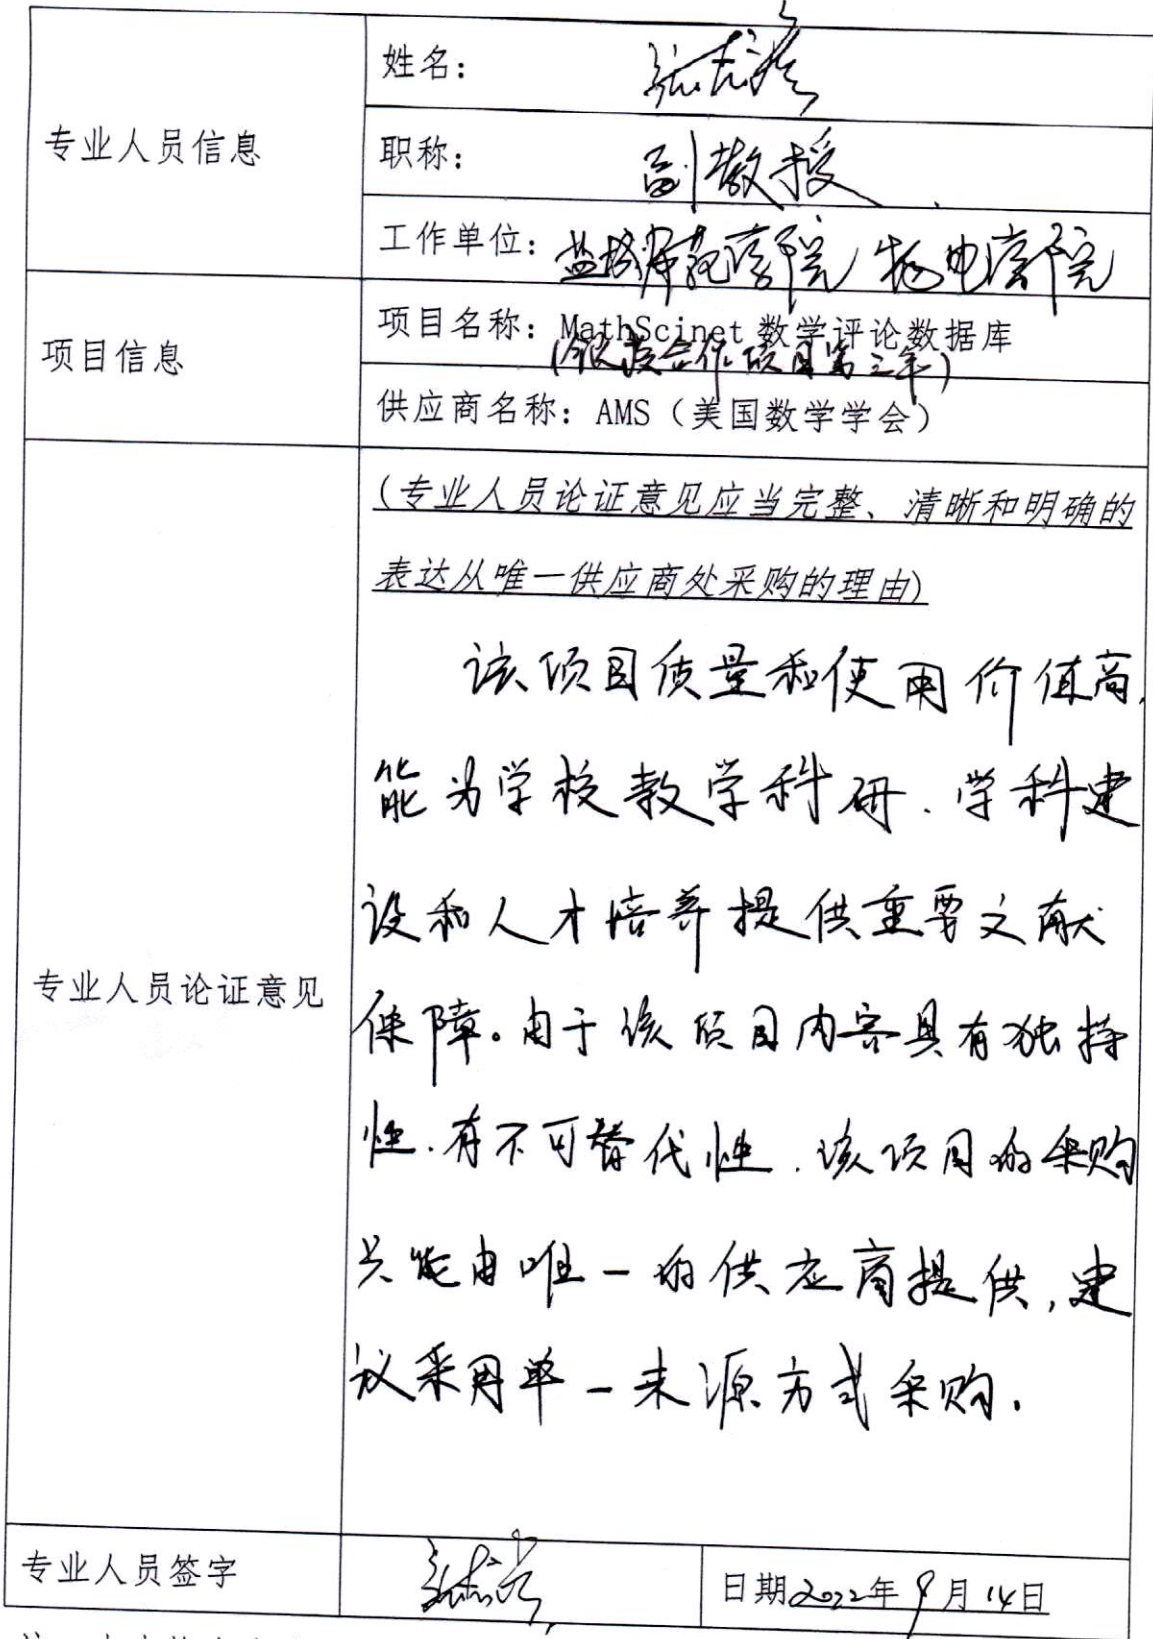 专业人员信息
姓名：张
职称：副教授
工作单位：盐城师范学院 物电学院
项目信息
项目名称：MathScinet 数学评论数据库
(合作项目第三年)
供应商名称：AMS（美国数学学会）
专业人员论证意见
(专业人员论证意见应当完整、清晰和明确的
表达从唯一供应商处采购的理由)
该项目质量和使用价值高,
能为学校教学科研、学科建
设和人才培养提供重要文献
保障。由于该项目内容具有独特
性、有不可替代性、该项目的采购
只能由唯一的供应商提供,建
议采用单一来源方式采购.
专业人员签字 张
日期2022年9月14日